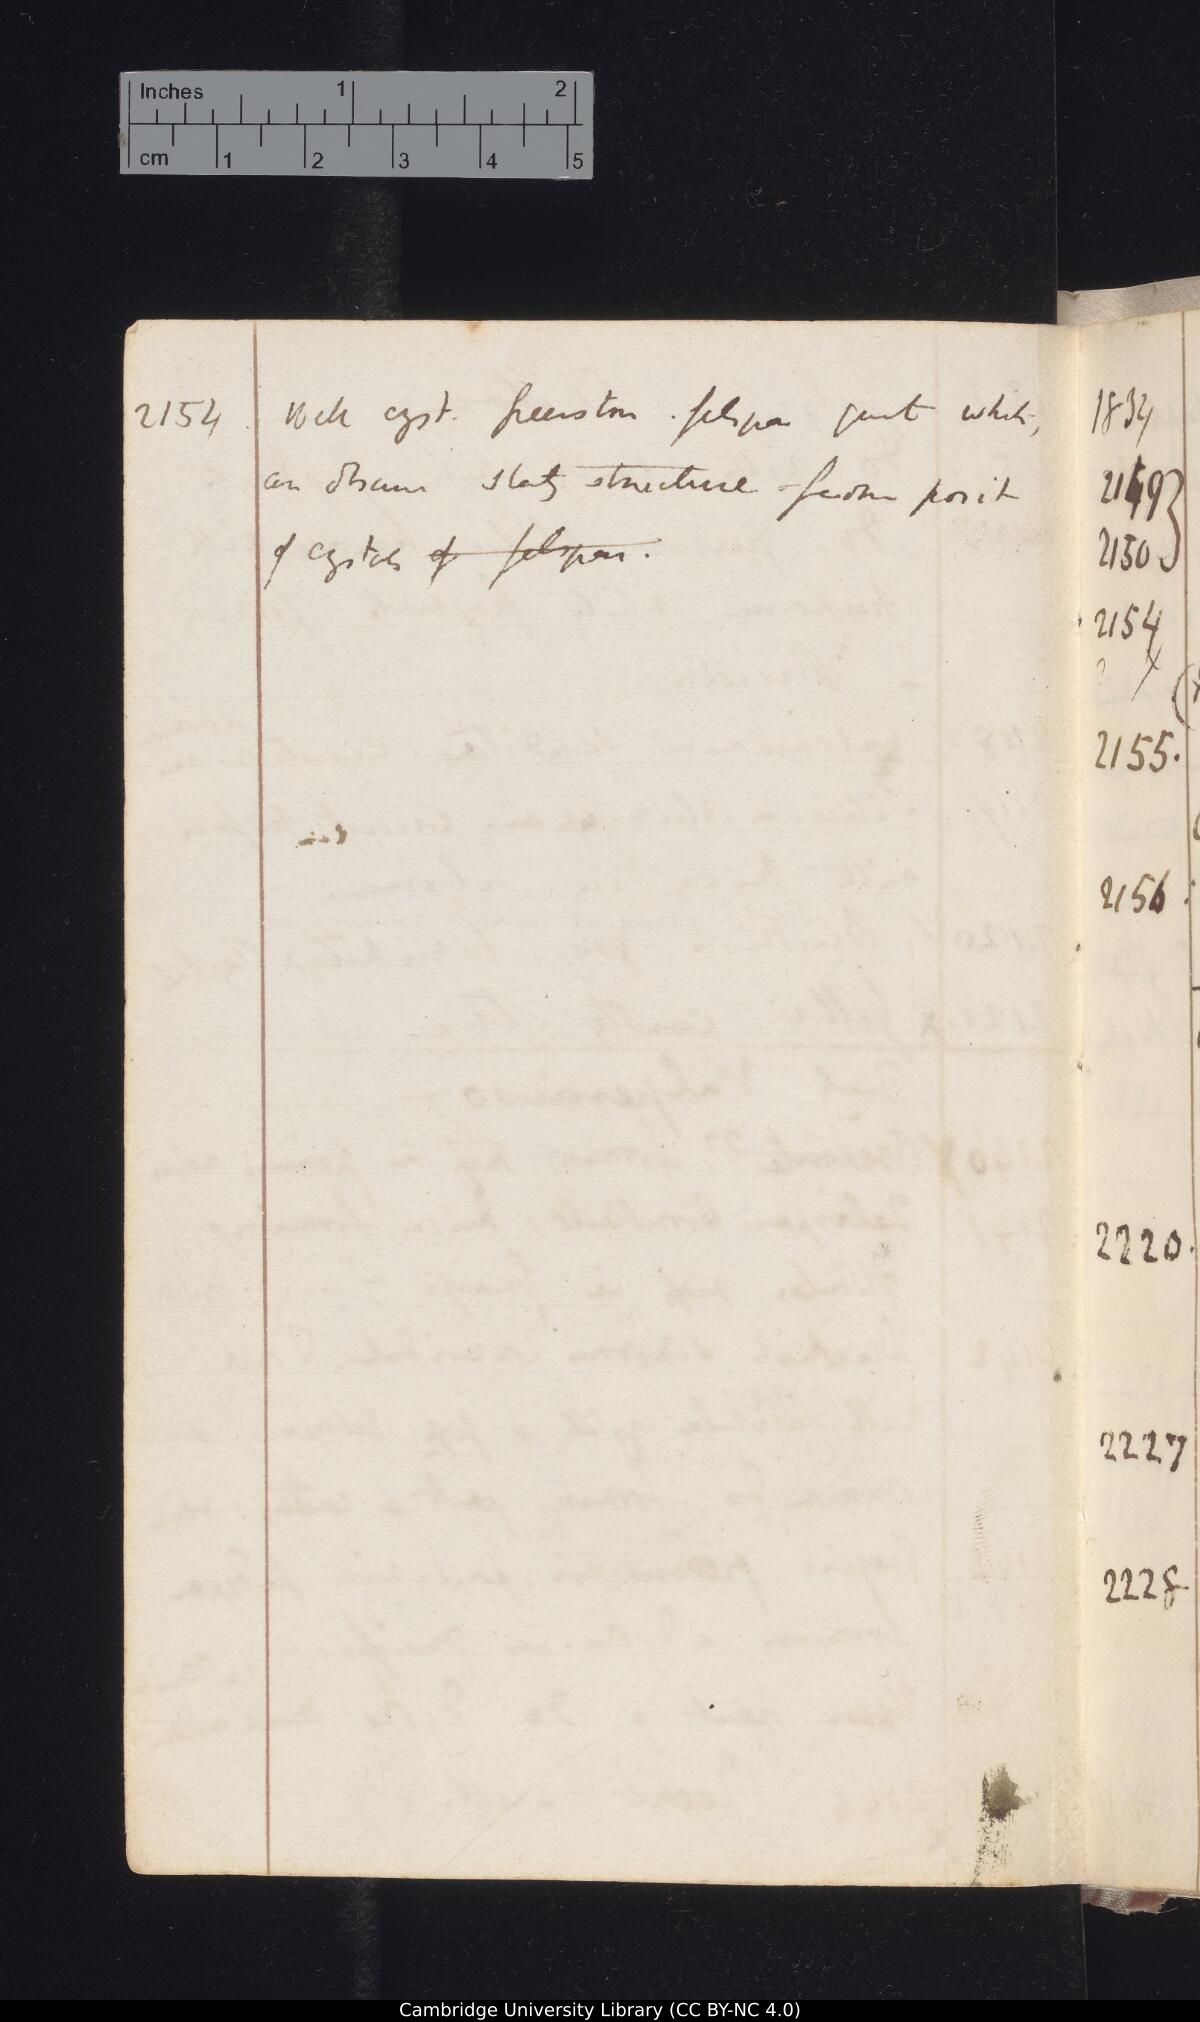 Inches 1 2
cm 1 2 3 4 5
2154 Well cryst. greenston. felspar quit white,
an obscure slaty structure from posit
of crystals of felspar.
1834
2149
2150
2154
2155.
2156
2220.
2227
2228
Cambridge University Library (CC BY-NC 4.0)